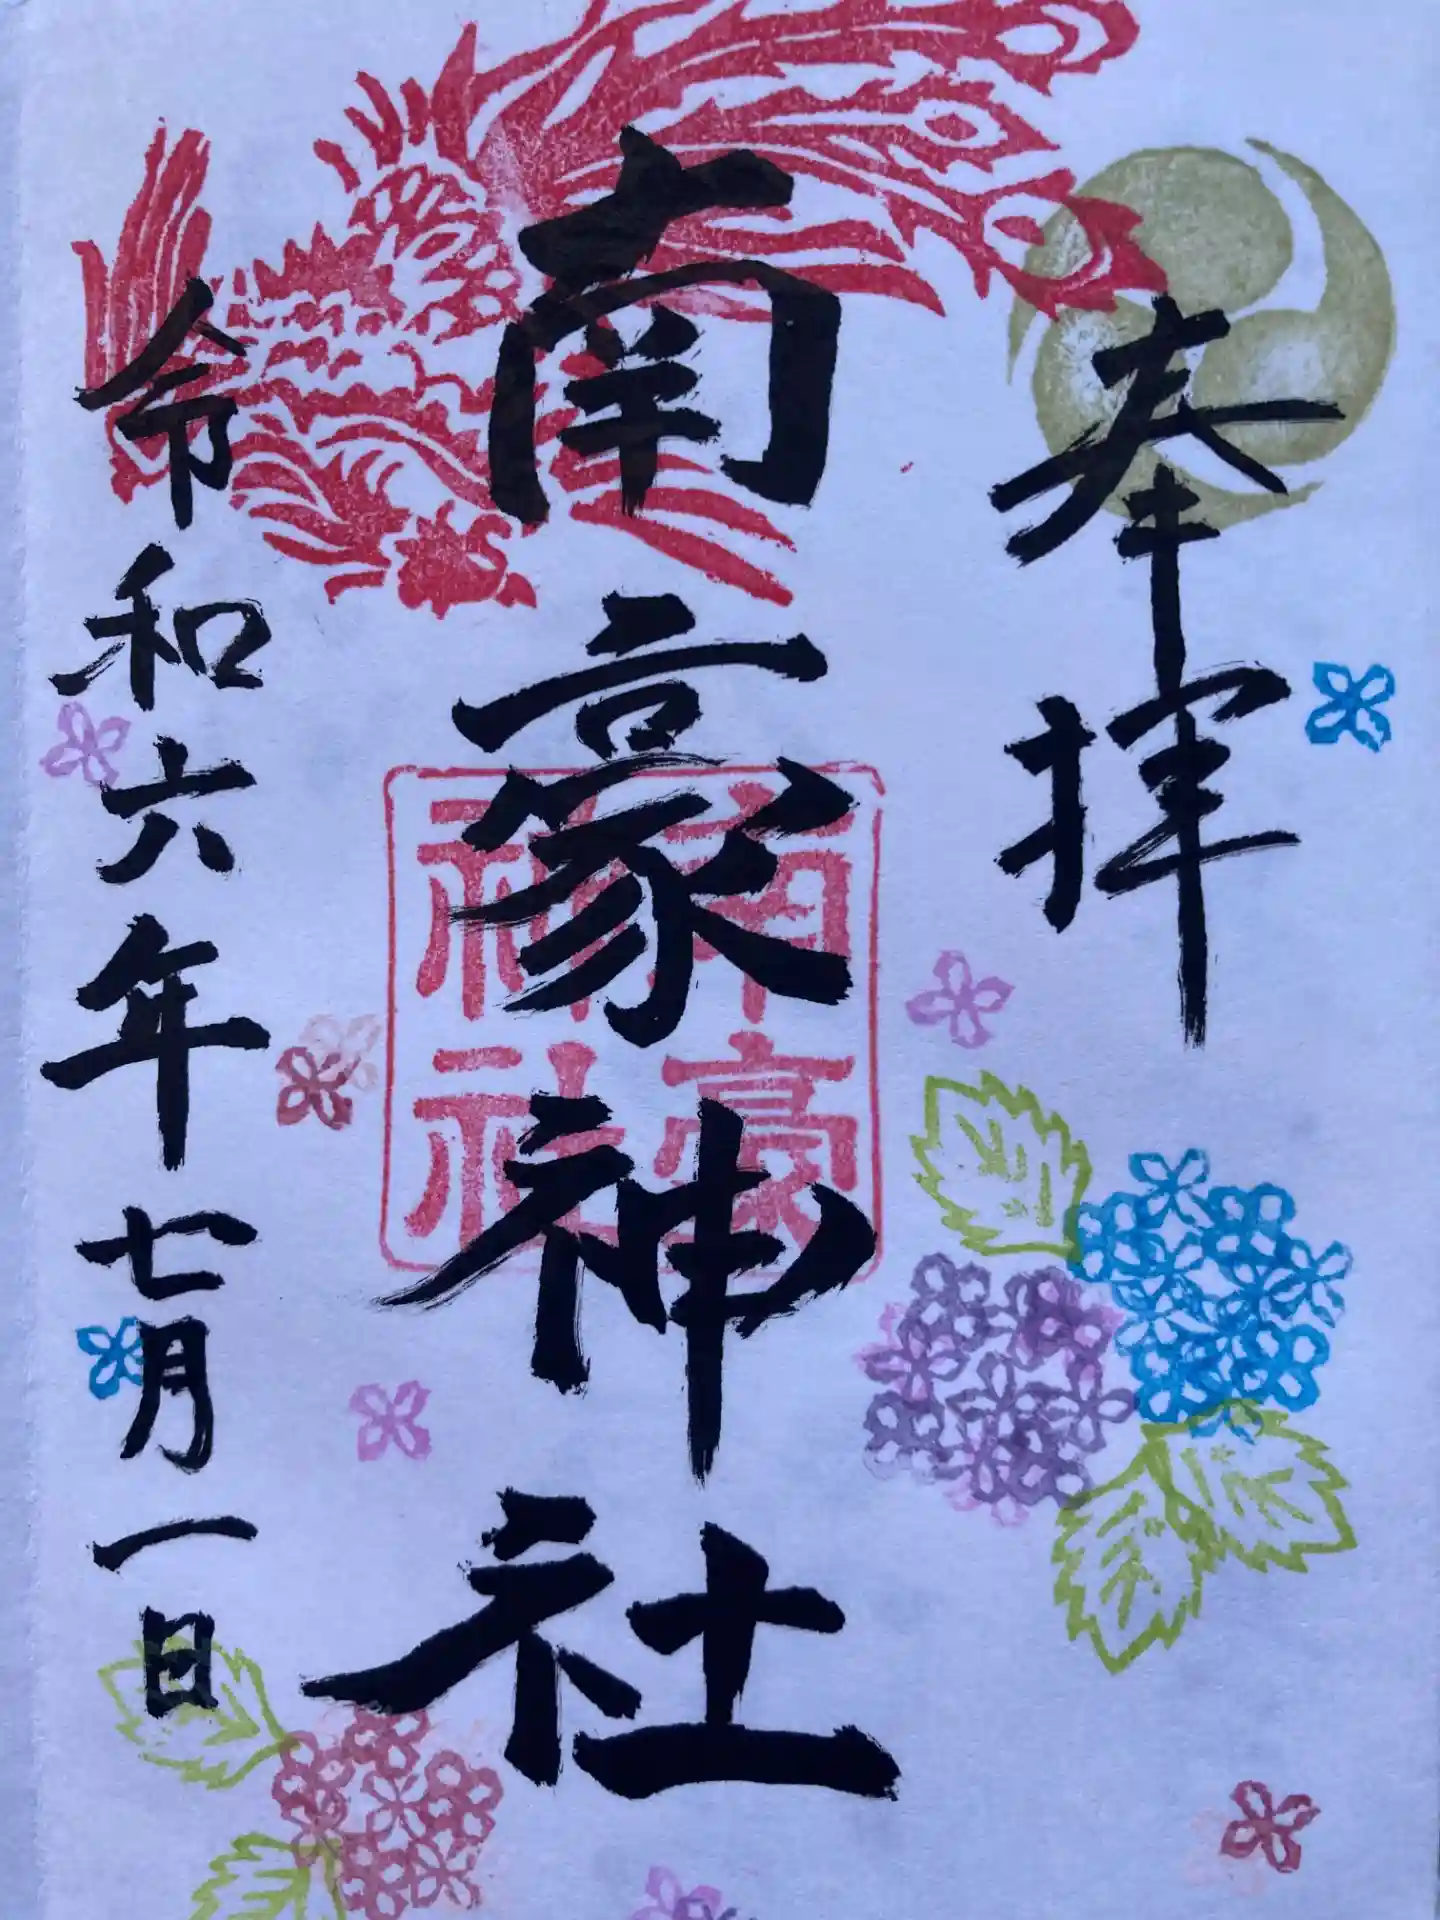 奉拝
南豪神社
南豪
神社
令和六年七月一日